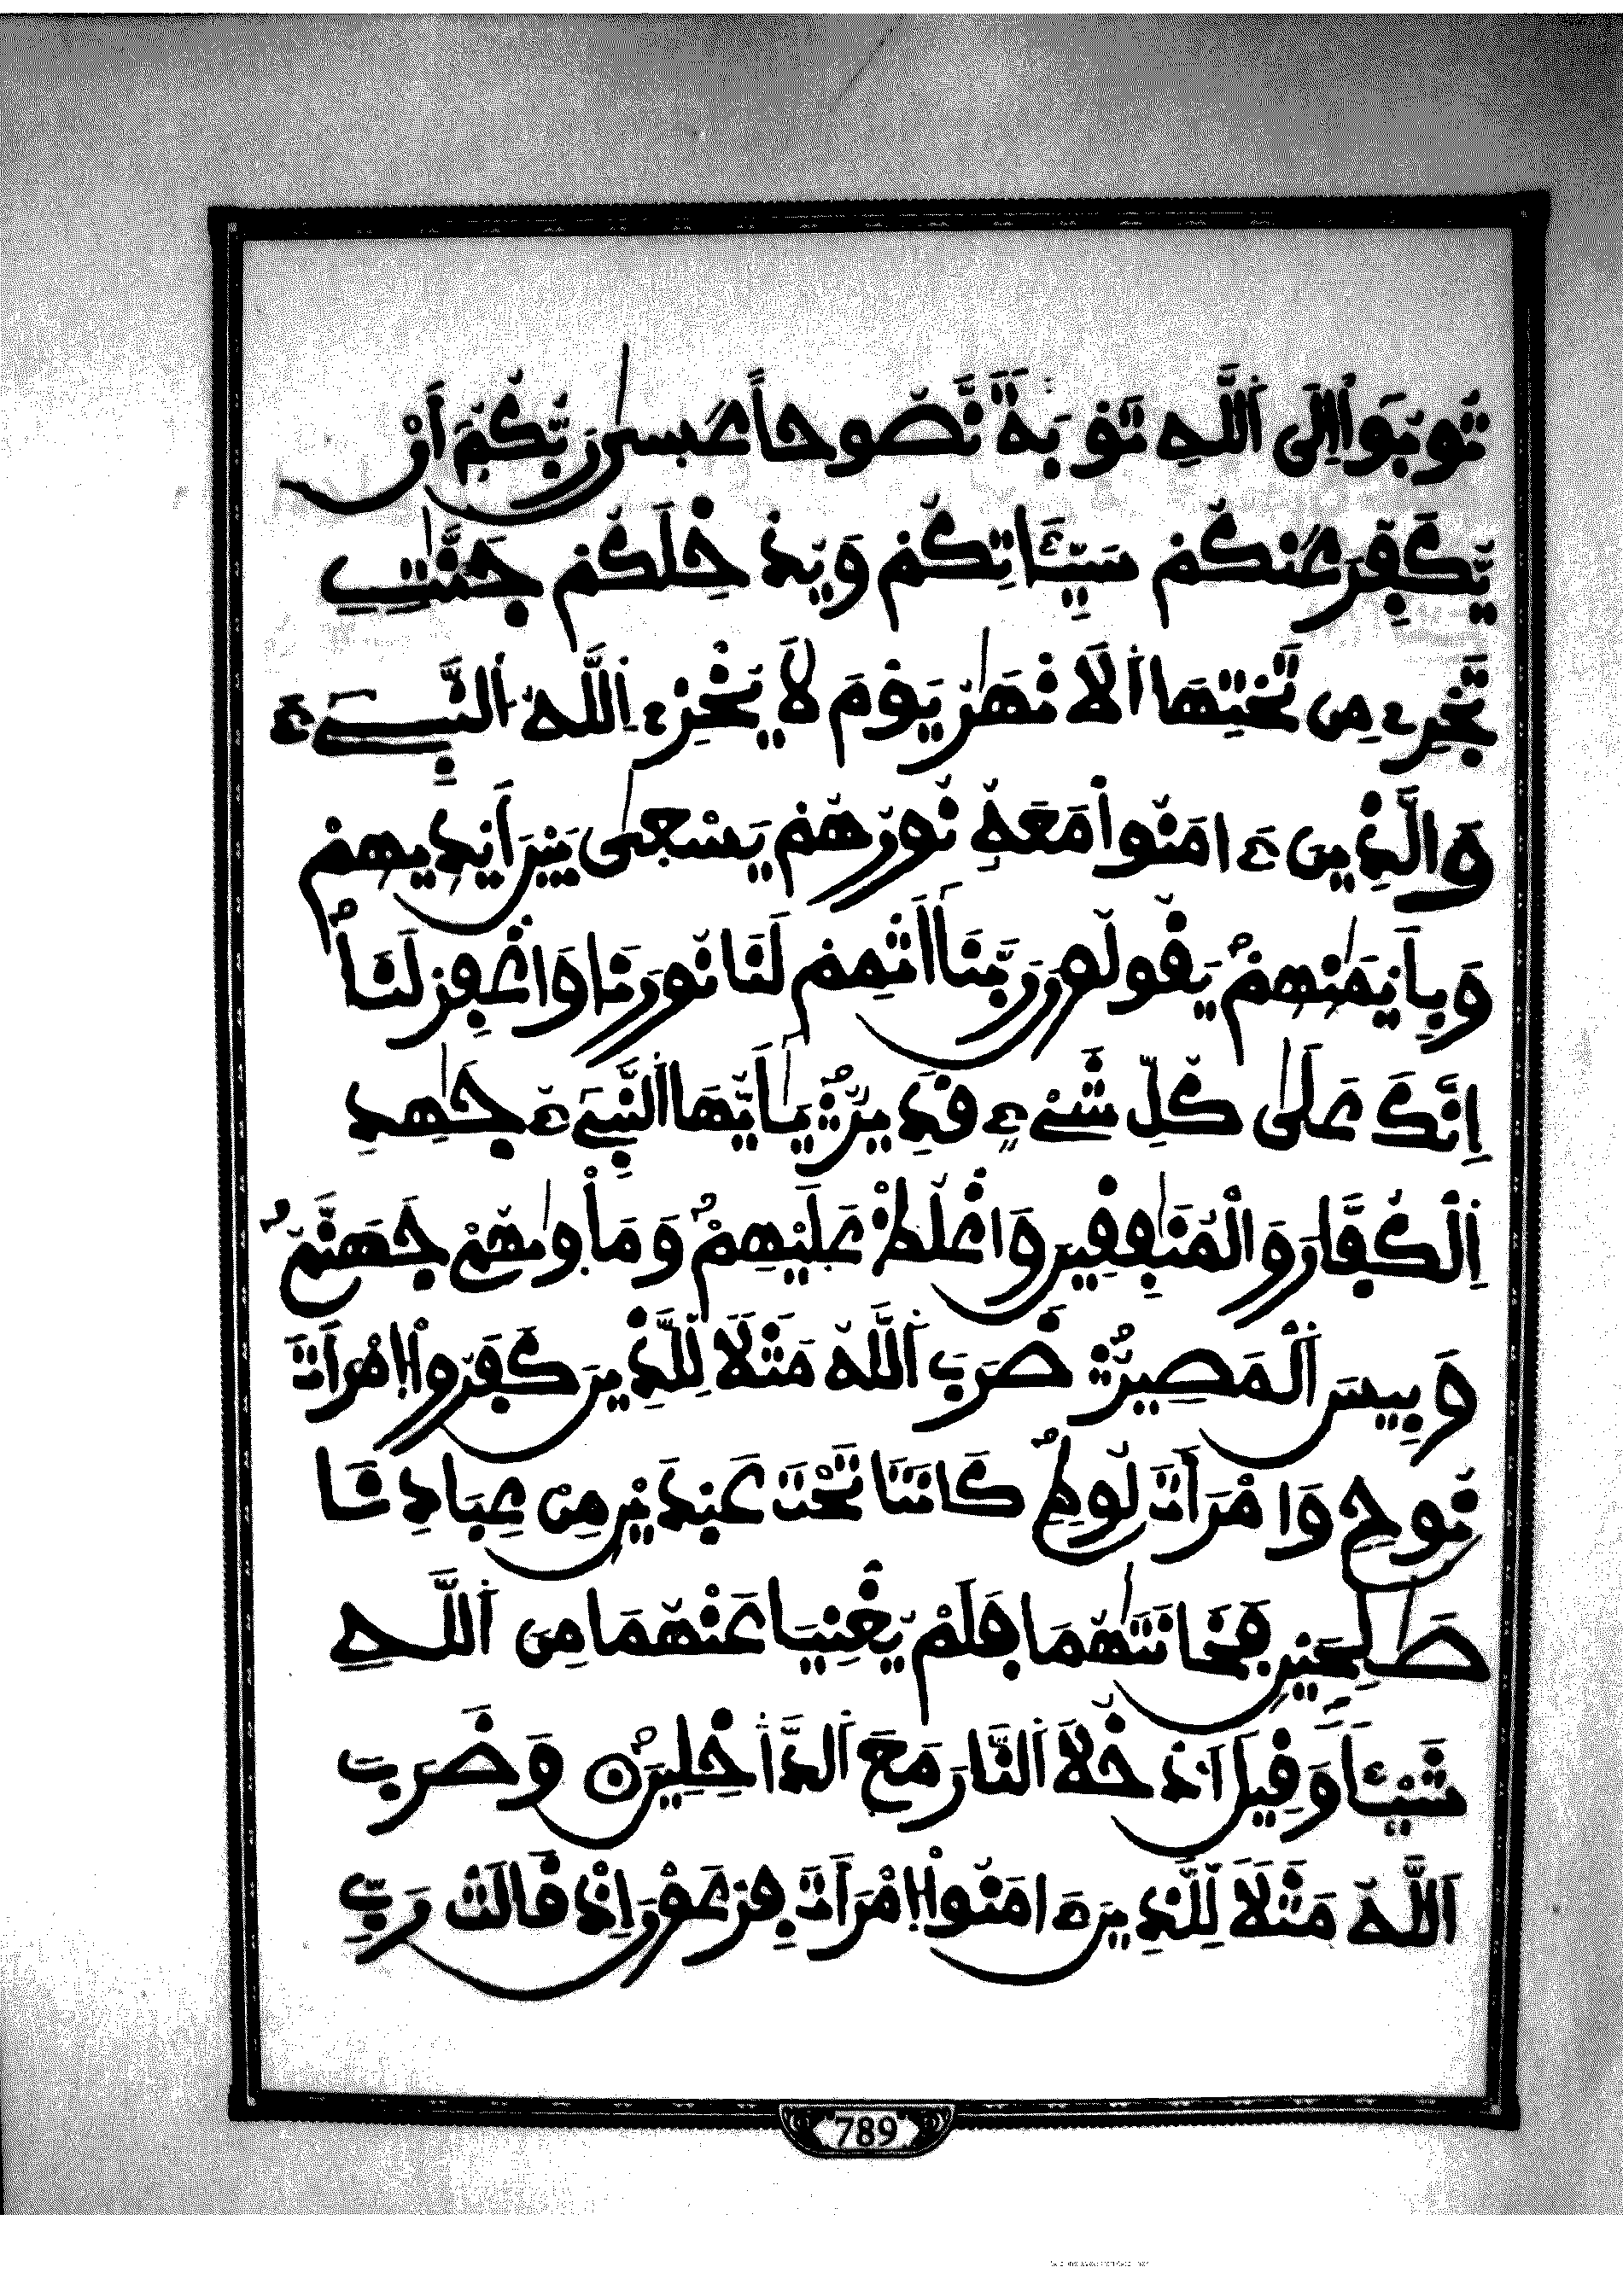 تُوبُوٓاْ إِلَى اَ۬للَّهِ تَوْبَةٗ نَّصُوحاً عَس۪ىٰ رَبُّكُمُۥٓ أَنْ
يُّكَفِّرَ عَنكُمْ سَيِّـَٔاتِكُمْ وَيُدْخِلَكُمْ جَنَّٰتٖ
تَجْرِے مِن تَحْتِهَا اَ۬لَانْهَٰرُ يَوْمَ لَا يُخْزِے اِ۬للَّهُ اُ۬لنَّبِےٓءَ
وَالذِينَ ءَامَنُواْ مَعَهُۥ نُورُهُمْ يَسْع۪ىٰ بَيْنَ أَيْدِيهِمْ
وَبِأَيْمَٰنِهِمْ يَقُولُونَ رَبَّنَآ أَتْمِمْ لَنَا نُورَنَا وَاغْفِرْ لَنَآ
إِنَّكَ عَلَىٰ كُلِّ شَےْءٖ قَدِيرٞ يَٰٓأَيُّهَا اَ۬لنَّبِےٓءُ جَٰهِدِ
اِ۬لْكُفَّارَ وَالْمُنَٰفِقِينَ وَاغْلُظْ عَلَيْهِمْ وَمَأْو۪ىٰهُمْ جَهَنَّمُ
وَبِيسَ اَ۬لْمَصِيرُ ضَرَبَ اَ۬للَّهُ مَثَلاٗ لِّلذِينَ كَفَرُواْ اُ۪مْرَأَتَ
نُوحٖ وَامْرَأَتَ لُوطٖ كَانَتَا تَحْتَ عَبْدَيْنِ مِنْ عِبَادِنَا
صَٰلِحَيْنِ فَخَانَتَٰهُمَا فَلَمْ يُغْنِيَا عَنْهُمَا مِنَ اَ۬للَّهِ
شَيْـٔاٗ وَقِيلَ اَ۟دْخُلَا اَ۬لنَّارَ مَعَ اَ۬لدَّٰخِلِينَ وَضَرَبَ
اَ۬للَّهُ مَثَلاٗ لِّلذِينَ ءَامَنُواْ اُ۪مْرَأَتَ فِرْعَوْنَ إِذْ قَالَتْ رَبِّ
789